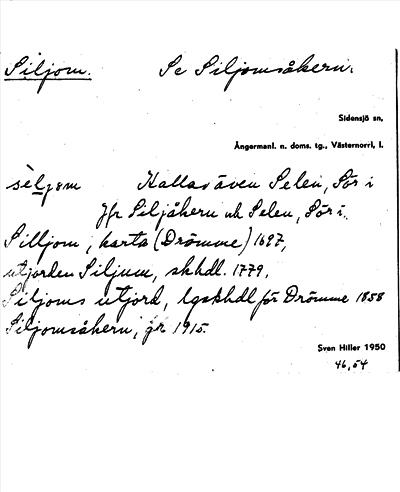 Siljom. Se Siljomsåkern.
Sidensjö sn,
Ångermanl. n. doms. tg., Västernorrl. l.
sèljom Kallas även Selen, Sör i
Jfr Siljåkern och Selen, Sör i.
Silljom, karta (Drömme) 1697,
utjorden Siljum, skhdl. 1779,
Siljoms utjord, lgskhdl för Drömme 1858
Siljomsåkern, jr 1915.
Sven Hiller 1950
46,54